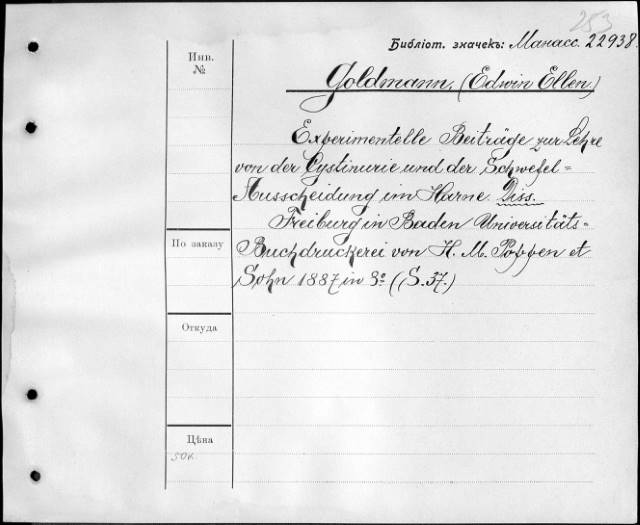 253
Библіот. значекъ: Манасс. 22938.
Инв.
№
Goldmann, (Edwin Ellen.)
Experimentelle Beiträge zur Lehre
von der Cystinurie und der Schwefel=
Ausscheidung im Harne. Diss.
Freiburg in Baden Universitäts=
Buchdruckerei von H. M. Poppen et
Sohn 1887 in 8º (S. 37.)
По заказу
Откуда
Цѣна
50к.